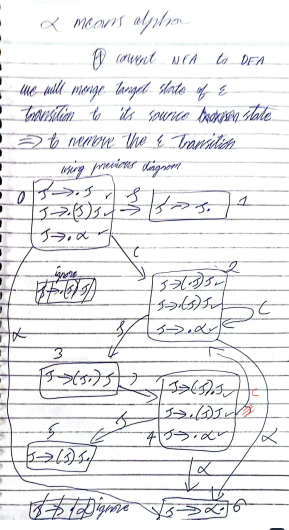 α means alpha
① convert NFA to DFA
we will merge target state of ε
transition to its source state
⇒ to remove the ε transition
using previous diagram
0
S→.S
S→.(S)S
S→.α
S
S→S.
1
(
ignore
S→.(S)S
2
S→(.S)S
S→.(S)S
S→.α
(
S
α
3
S→(S.)S
)
S→(S).S
S→.(S)S
S→.α
4
(
S
5
S→(S)S.
α
α
ignore
S→α.
6